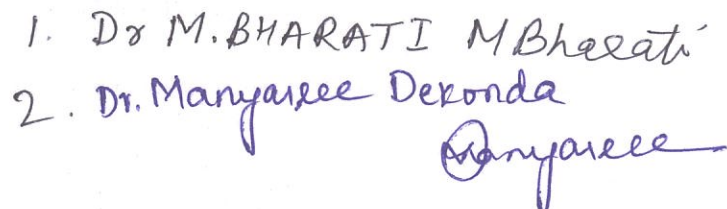 1. Dr M. BHARATI MBharati
2. Dr. Manyasree Deronda
Manyasree